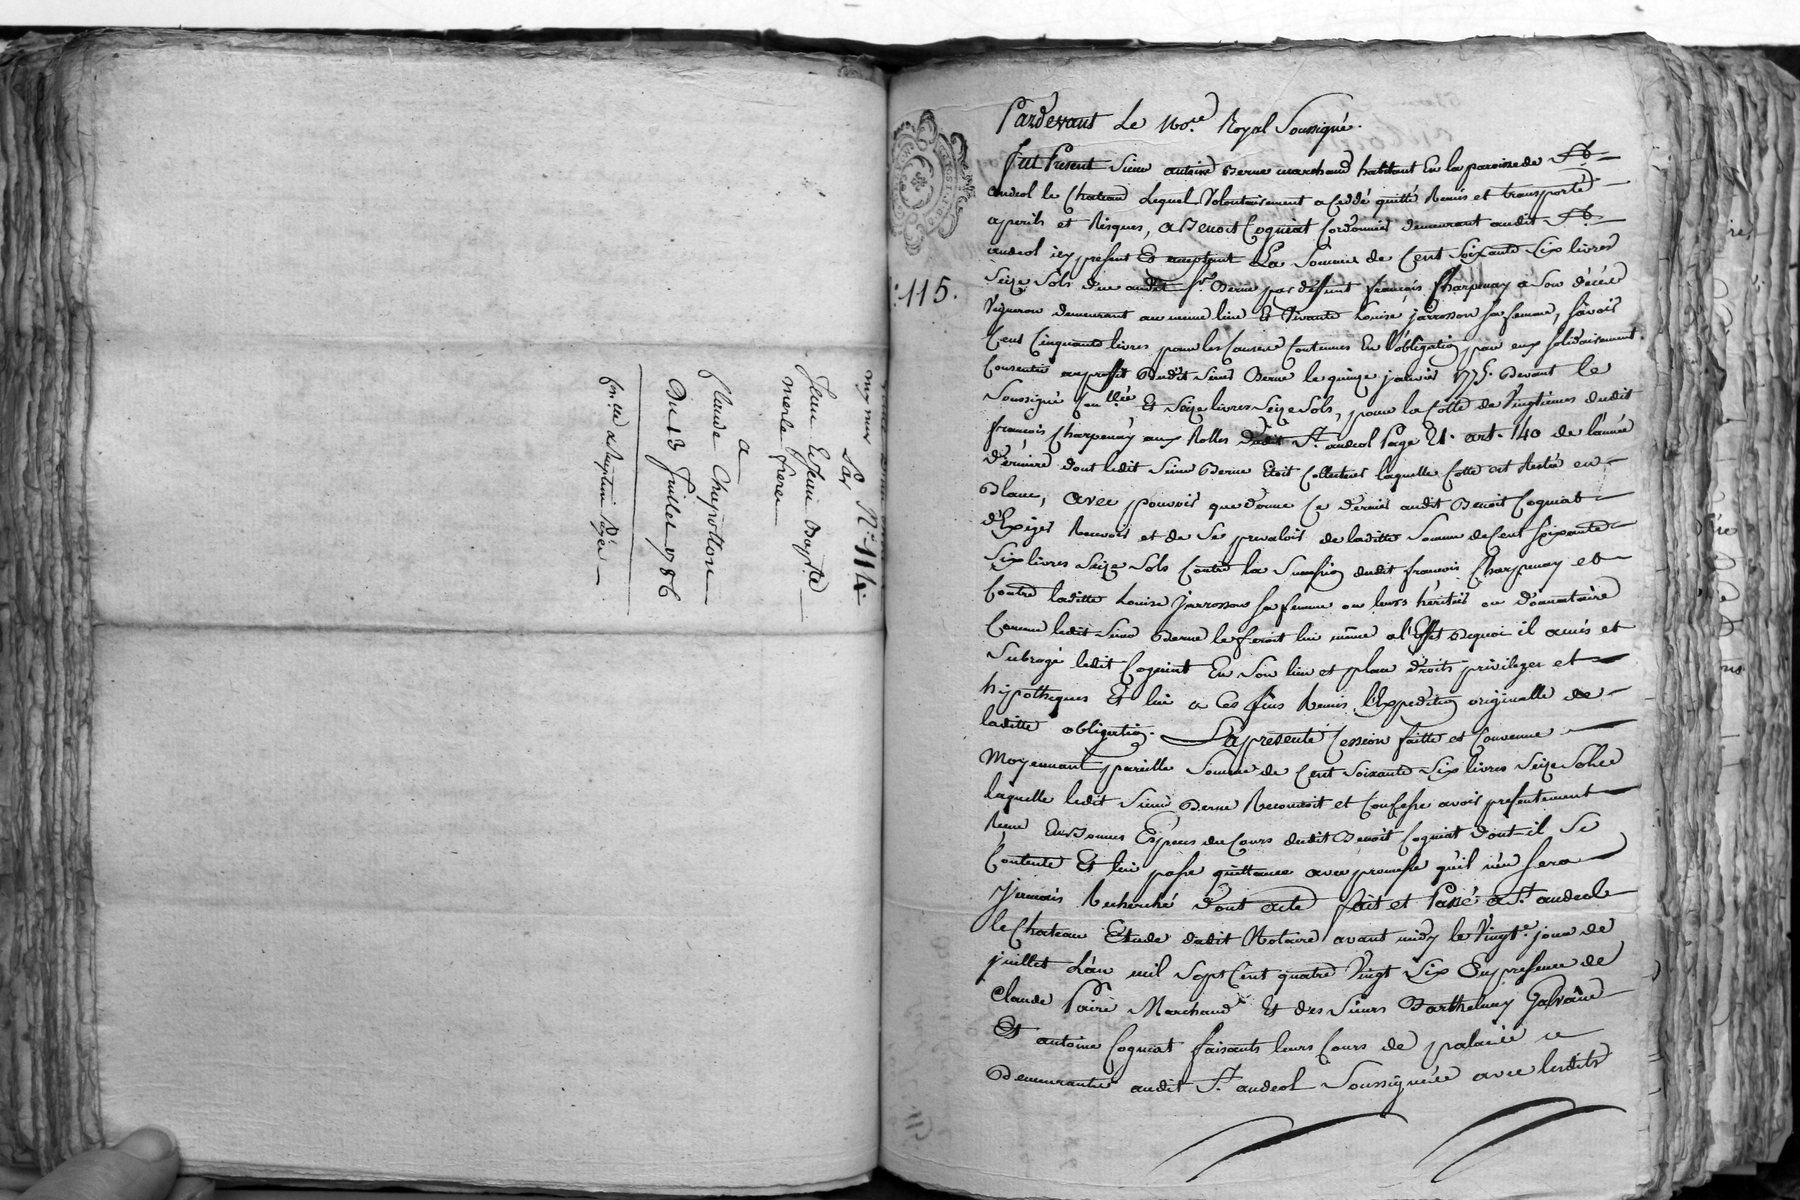 N.° 114.
Par
Jean Estienne Bapt.te
merle freres
a
Claude Chepollon
Du 13 Juillet 1786
115.
Pardevant Le No.re Royal Soussigné.
Fut Présent Sieur antoine Berne marchand habitant En la paroisse de St
andeol le Chateau Lequel Volontairement a Ceddé quitté Remis et transporté
a perils et Risques, a Benoit Cogniat Cordonnier demeurant audit St
andeol icy présent Et acceptant La Somme de Cent Soixante Six livres
Seize Sols due audit Sr Berne par deffunt françois Charpenay a Son décéé
Vigneron demeurant au meme lieu Et Vivante Louise Jarrosson Sa femme, Sçavoir
Cent Cinquante livres pour les Causes Contenues En l'obligation par eux Solidairement
Consentie au proffit Dudit Sieur Berne le quinze janvier 1775. Devant le
Soussigné Et Seize livres Seize Sols, pour la Cotte de Vingtiemes dudit
francois Charpenay aux Rolles dudit St. andeol Page 21. art. 140 de l'année
derniere dont ledit Sieur Berne Etoit Collecteur laquelle Cotte est Restée en
Blanc, avec pouvoir que donne Ce dernier audit Benoit Cogniat
d'Exiger Recevoir et de Se prevaloir de laditte Somme de Cent Soixante
Six livres Seize Sols Contre la Succession dudit francois Charpenay et
Contre laditte Louise Jarrosson Sa femme ou leurs héritiers ou donnataire
Comme ledit Sieur Berne le feroit lui même a l'Effet Dequoi il a mis et
Subrogé ledit Cogniat En Son lieu et place droits privileges et
hipotheques Et lui a Ces fins Remis l'Expedition originalle de
laditte obligation. La presente Cession faitte et Convenue
Moyennant pareille Somme de Cent Soixante Six livres Seize Sols
laquelle ledit Sieur Berne Reconnoit et Confesse avoir presentement
Recue En Bonnes Especes du Cours dudit Benoit Cogniat dont il Se
Contente Et lui passe quittance avec promesse qu'il n'en Sera
Jamais Recherché Dont acte fait et Passé a St. andeol
le Chateau Etude dudit Notaire avant midy le Vingt.e jour de
juillet L'an mil Sept Cent quatre Vingt Six En presence de
Claude Poire Marchand Et des Sieurs Barthelmy
Et antoine Cogniat faisants leurs Cours de
Demeurants audit St. andeol Soussignés avec lesdits